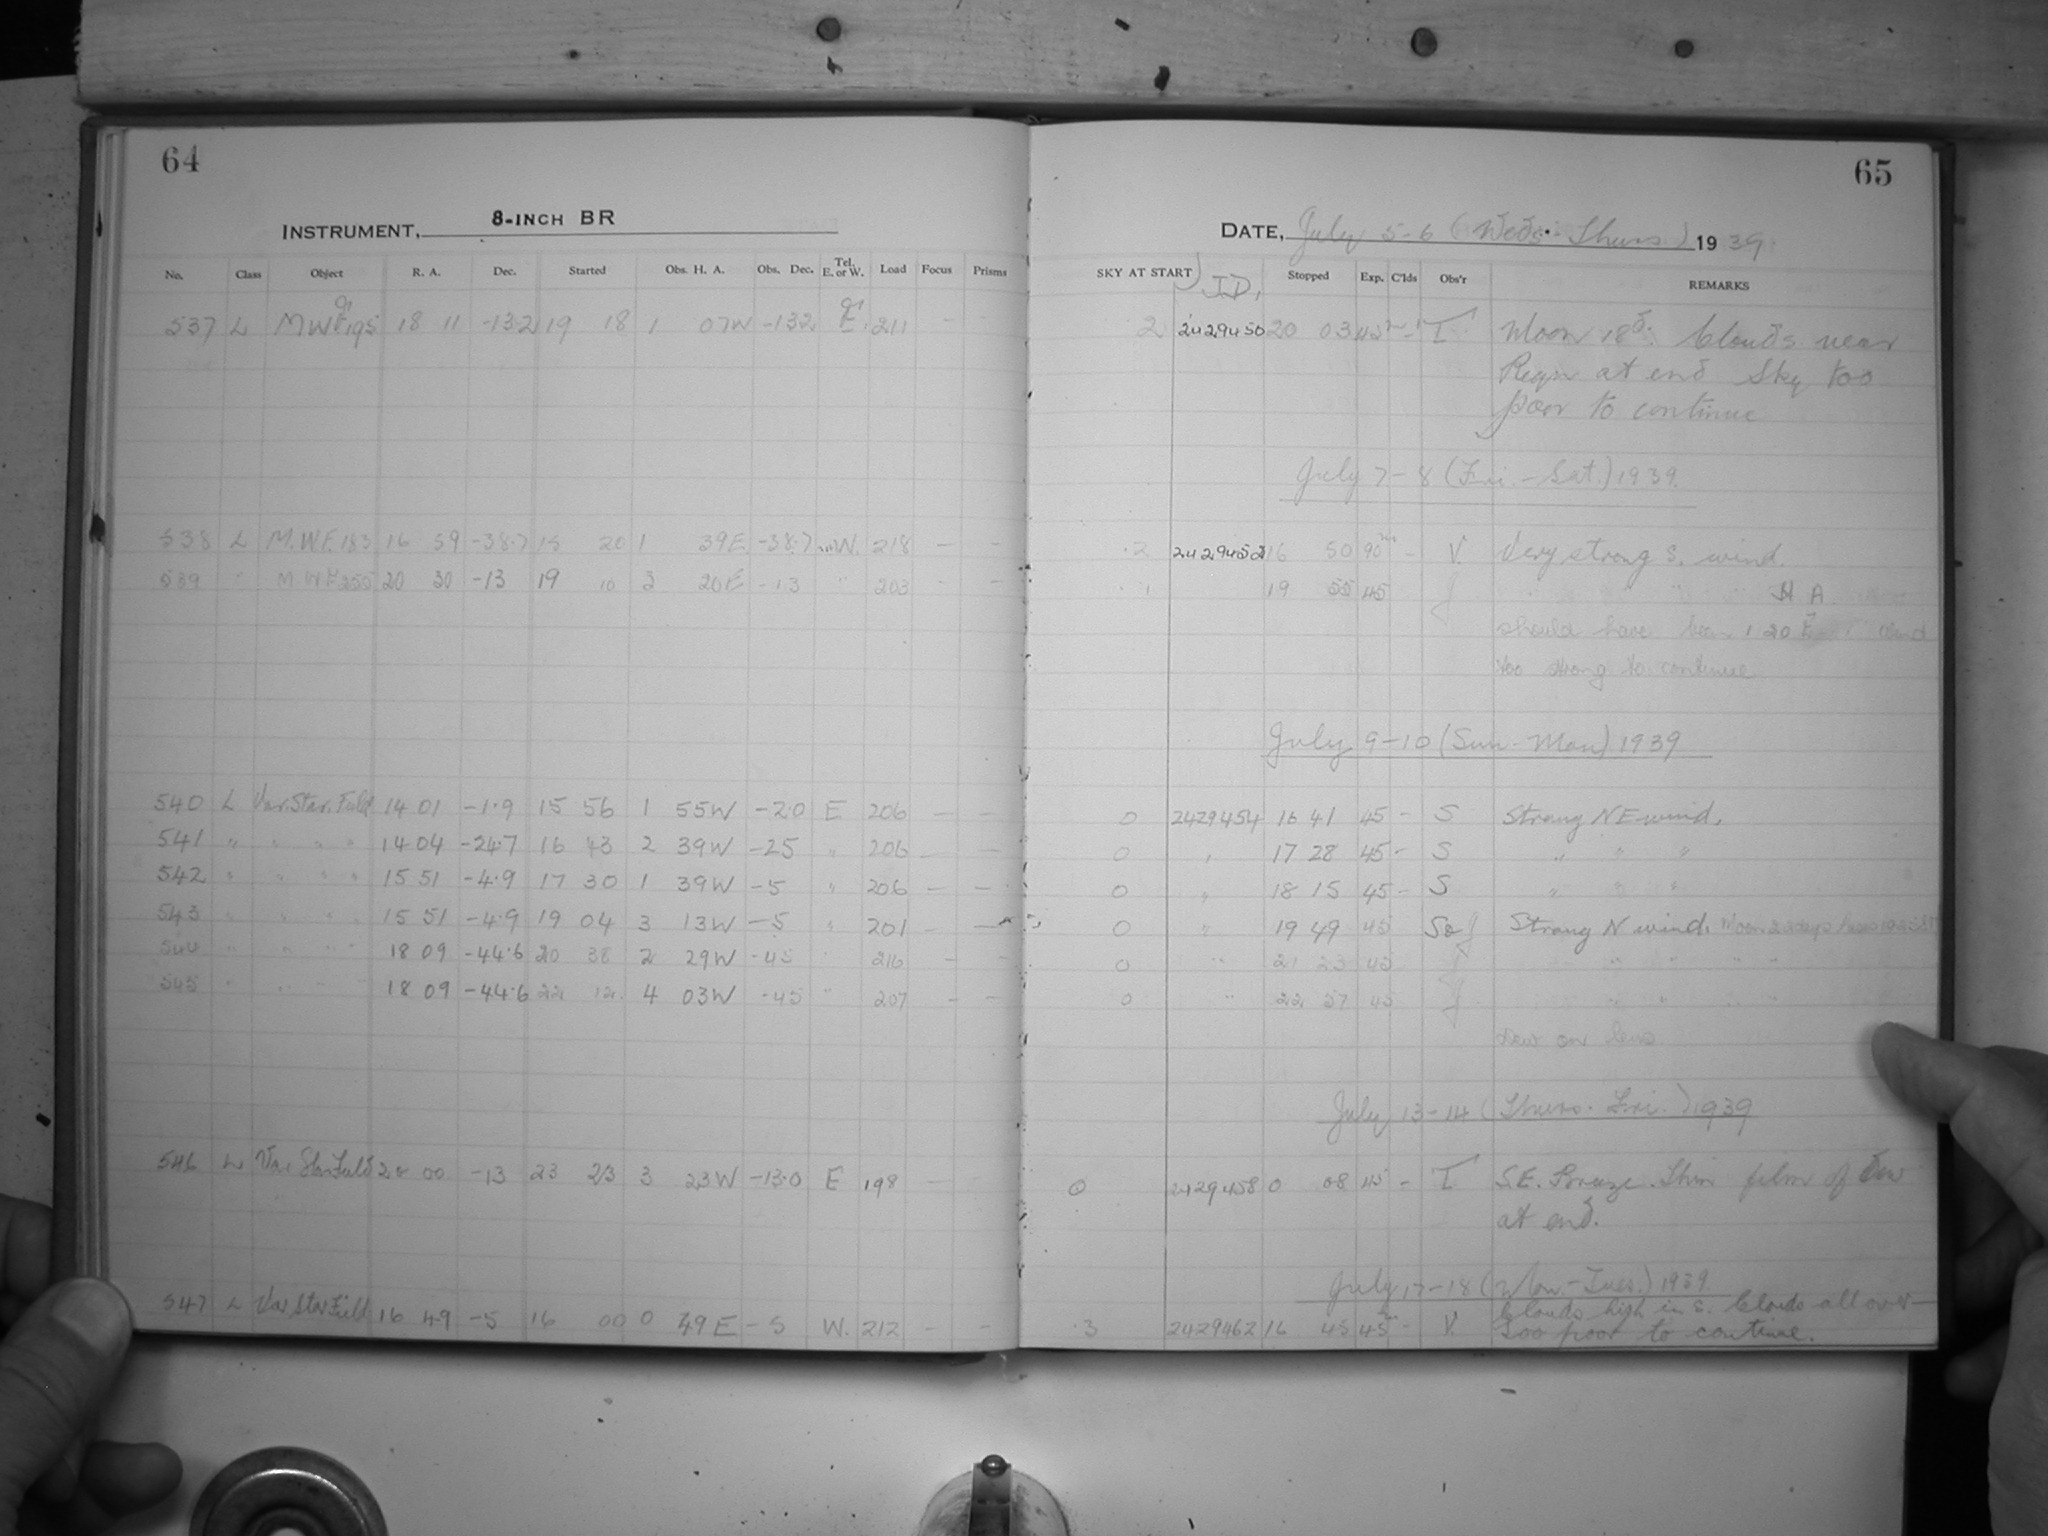 64
INSTRUMENT, 8-INCH BR
No. Class Object R. A. Dec. Started Obs. H. A. Obs. Dec. Tel. E. or W. Load Focus Prisms
537 L MWF195 18 11 -13.2 19 18 1 07W -13.2 E 211 - -
538 L M.W.F. 183 16 59 -38.7 15 20 1 39E -38.7 W. 218 - -
539 " MWF255 20 30 -13 19 10 3 20E -13 " 203 - -
540 L Var. Star. Field 14 01 -1.9 15 56 1 55W -2.0 E 206 - -
541 " " " " 14 04 -24.7 16 43 2 39W -25 " 206 - -
542 " " " " 15 51 -4.9 17 30 1 39W -5 " 206 - -
543 " " " " 15 51 -4.9 19 04 3 13W -5 " 201 - -
544 " " " " 18 09 -44.6 20 38 2 29W -45 " 216 - -
545 " " " " 18 09 -44.6 22 12 4 03W -45 " 207 - -
546 L Var Star Field 20 00 -13 23 23 3 23W -13.0 E 198 - -
547 L Var Star Field 16 49 -5 16 00 0 49E -5 W. 212 - -
65
DATE, July 5-6 (Weds. Thurs) 1939
SKY AT START J.D. Stopped Exp. C'lds Obs'r REMARKS
2 2429450 20 03 45m - T Moon 18d. Clouds near
Region at end Sky too
poor to continue
July 7-8 (Fri.-Sat.) 1939.
.2 2429452 16 50 90m - V. Very strong S. wind.
19 55 45 J " " " H A
should have been 1 20 E wind
too strong to continue
July 9-10 (Sun-Mon) 1939
0 2429454 16 41 45 - S Strong NE wind.
0 " 17 28 45 - S " " "
0 " 18 15 45 - S " " "
0 " 19 49 45 S&J Strong N wind. Moon
0 " 21 23 45 J " " " "
0 " 22 57 45 J " " " "
dew on lens
July 13-14 (Thurs. Fri.) 1939
0 2429458 0 08 45 - T S.E. Breeze. Thin film of dew
at end.
July 17-18 (Mon.-Tues.) 1939.
Clouds high in S. Clouds all over -
.3 2429462 16 45 45m - V. Too poor to continue.